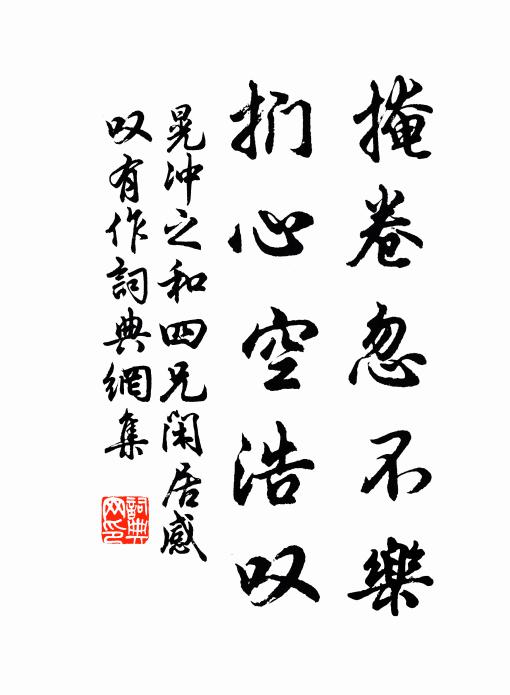 掩卷忽不樂
捫心空浩叹
晁冲之和四兄閑居感
叹有作詞典網集
詞典網印